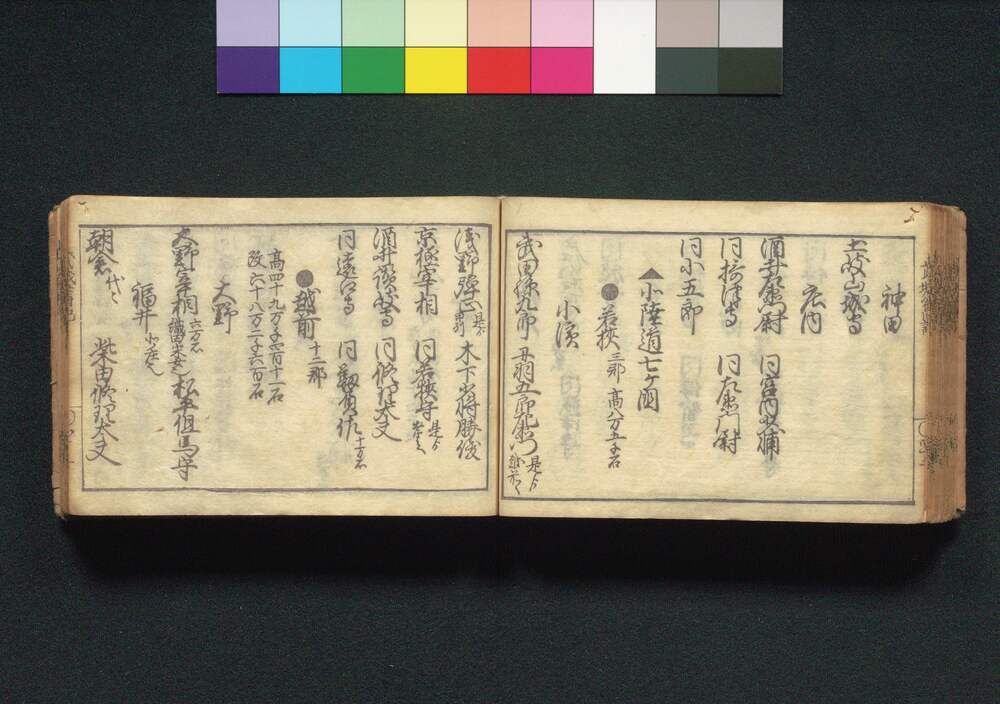 神田
土岐山城守
庄内
酒井左衛門尉 同宮内大輔
同摂津守 同左衛門尉
同小五郎
▲北陸道七ケ国
●若狭 三郡 高八万五千石
小濱
武田孫九郎 丹羽五郎左衛門 是ゟ
浅野弾正 是ゟ 木下少将勝俊
京極宰相 同若狭守 是ゟ
酒井讃岐守 同修理大夫
同遠江守 同靱負佐 十万石
●越前 十二郡
高四十九万千四百十一石
改六十八万二千六百石
大野
大野宰相 六万石 織田 松平但馬守
福井
朝倉 代々 柴田修理大夫